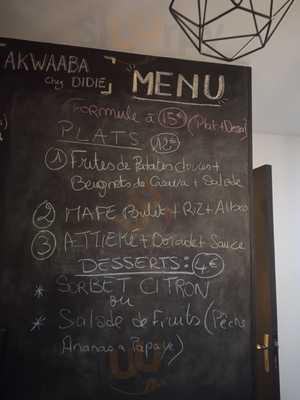 AKWAABA
Chez DIDIE
MENU
FORMULE à 15€ (Plat+Dessert)
PLATS 12€
① Frites de Patates douces +
Beignets de + Salade
② MAFE Poulet + RIZ + Alloco
③ ATTIEKÉ + Dorade + Sauce
DESSERTS: 4€
* SORBET CITRON
ou
* Salade de Fruits (Pêche
Ananas Papaye)